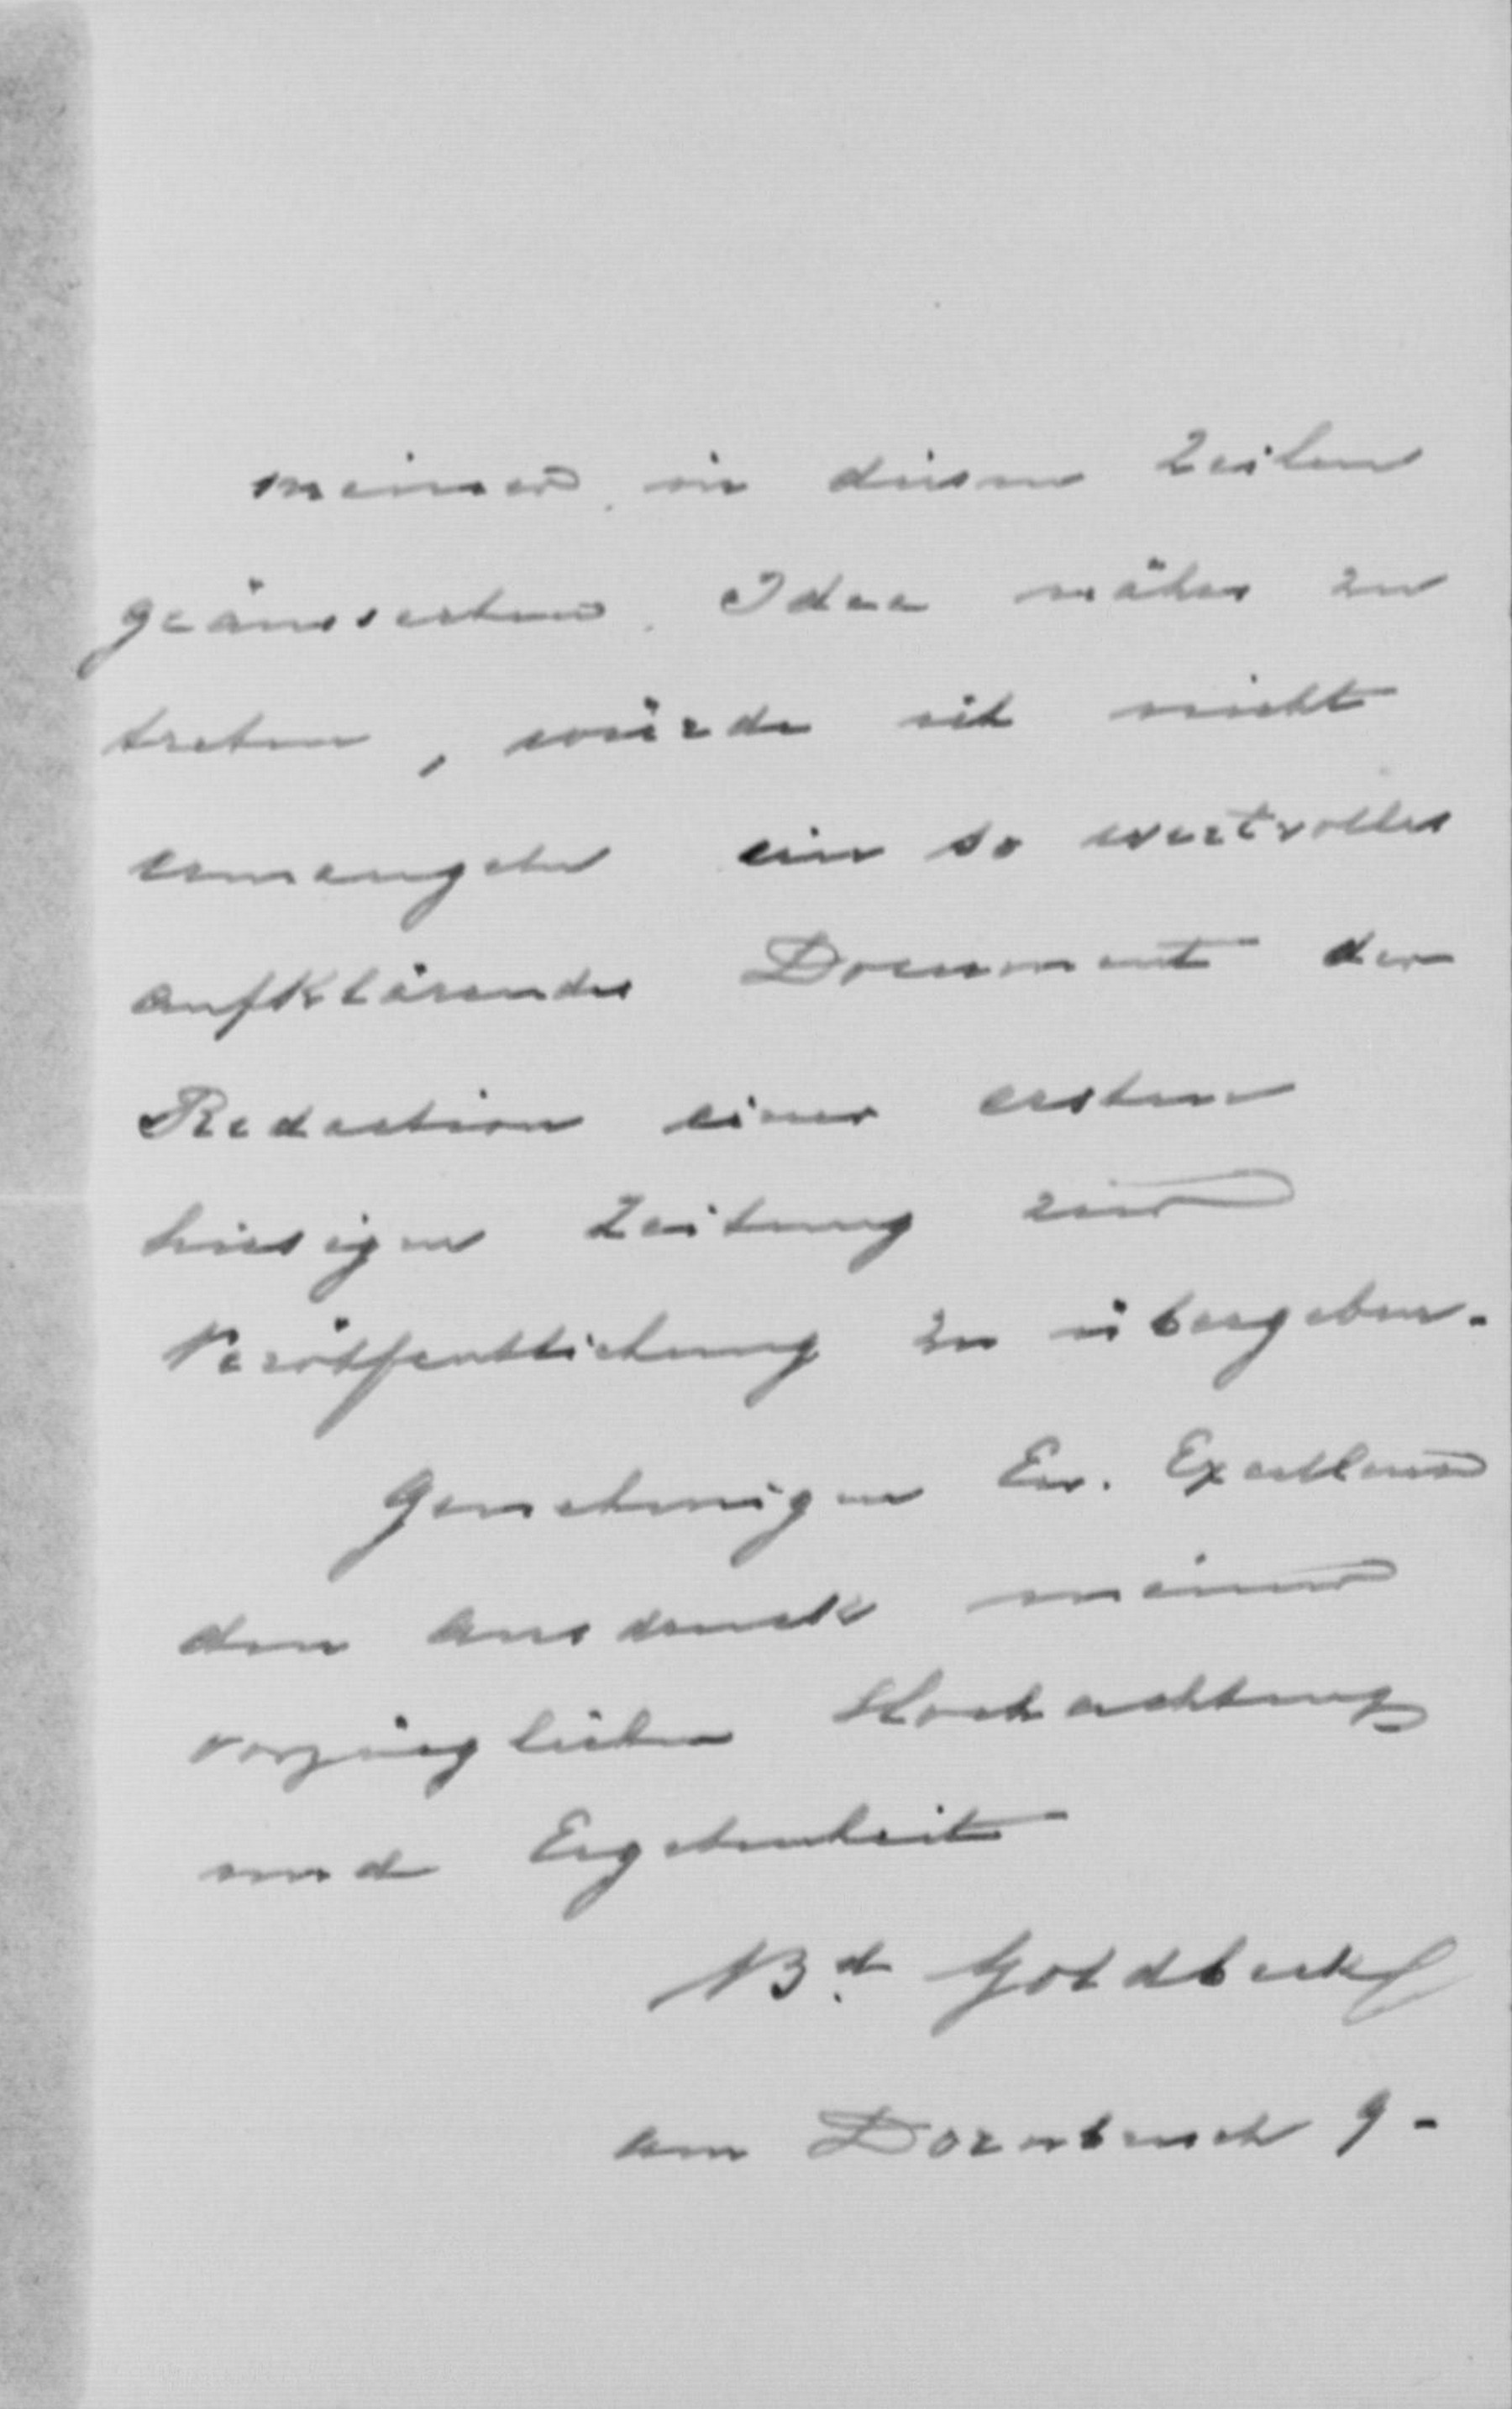 meiner in diesen Zeilen
geäusserten Idee näher zu
treten, würde ich nicht
ermangeln ein so wertvolles
aufklärendes Document der
Redaction einer ersten
hiesigen Zeitung zur
Veröffentlichung zu übergeben.
Genehmigen Ew. Excellenz
den Ausdruck meiner
vorzüglichen Hochachtung
und Ergebenheit
Bd. Goldbeck
am Dornbusch 9.